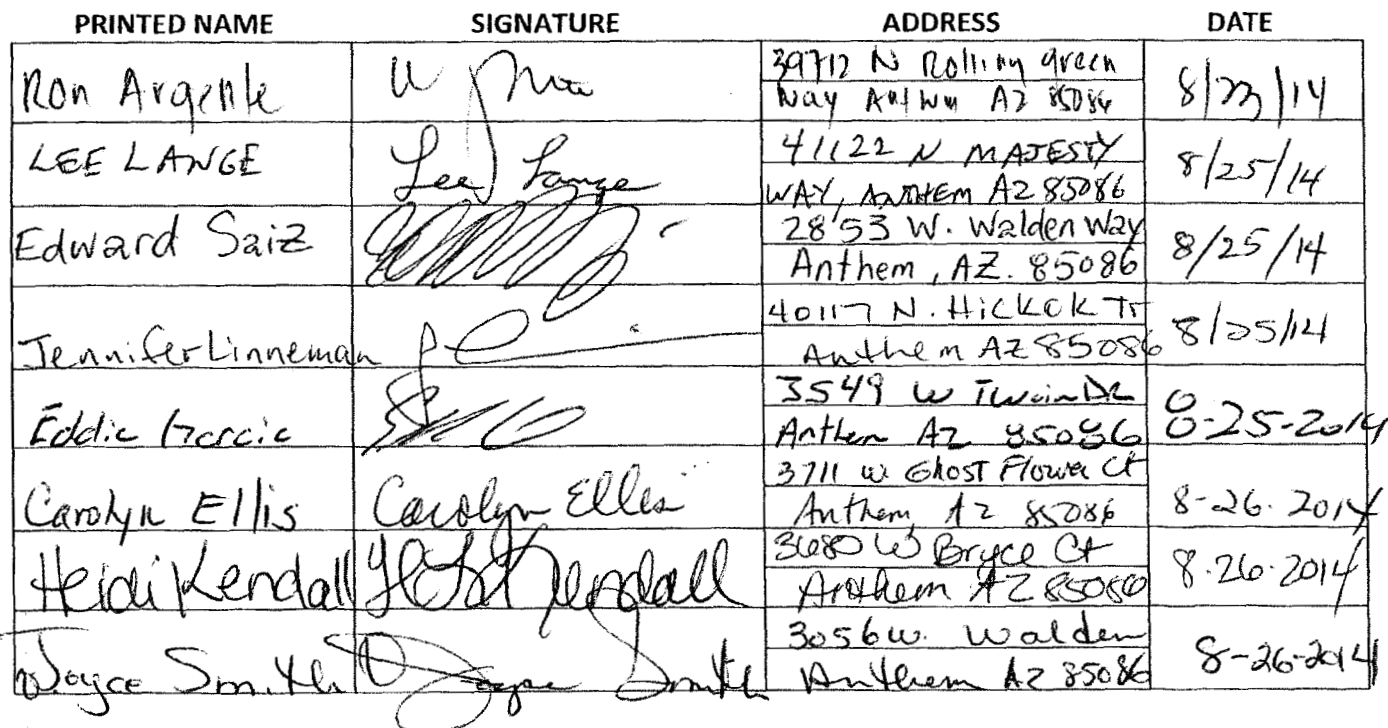 PRINTED NAME SIGNATURE ADDRESS DATE
Ron Argente 39712 N Rolling green
Way Anthem AZ 85086 8/23/14
LEE LANGE Lee Lange 41122 N MAJESTY
WAY, ANTHEM AZ 85086 8/25/14
Edward Saiz 2853 W. Walden Way
Anthem, AZ. 85086 8/25/14
Jennifer Linneman 40117 N. Hickok Tr
Anthem AZ 85086 8/25/14
Eddie Garcia 3549 W Twain Dr
Anthem AZ 85086 8-25-2014
Carolyn Ellis Carolyn Ellis 3711 W. Ghost Flower Ct
Anthem, AZ 85086 8-26-2014
Heidi Kendall Kendall 3680 W Bryce Ct
Anthem AZ 85086 8-26-2014
Joyce Smith Joyce Smith 3056 W. Walden
Anthem AZ 85086 8-26-2014